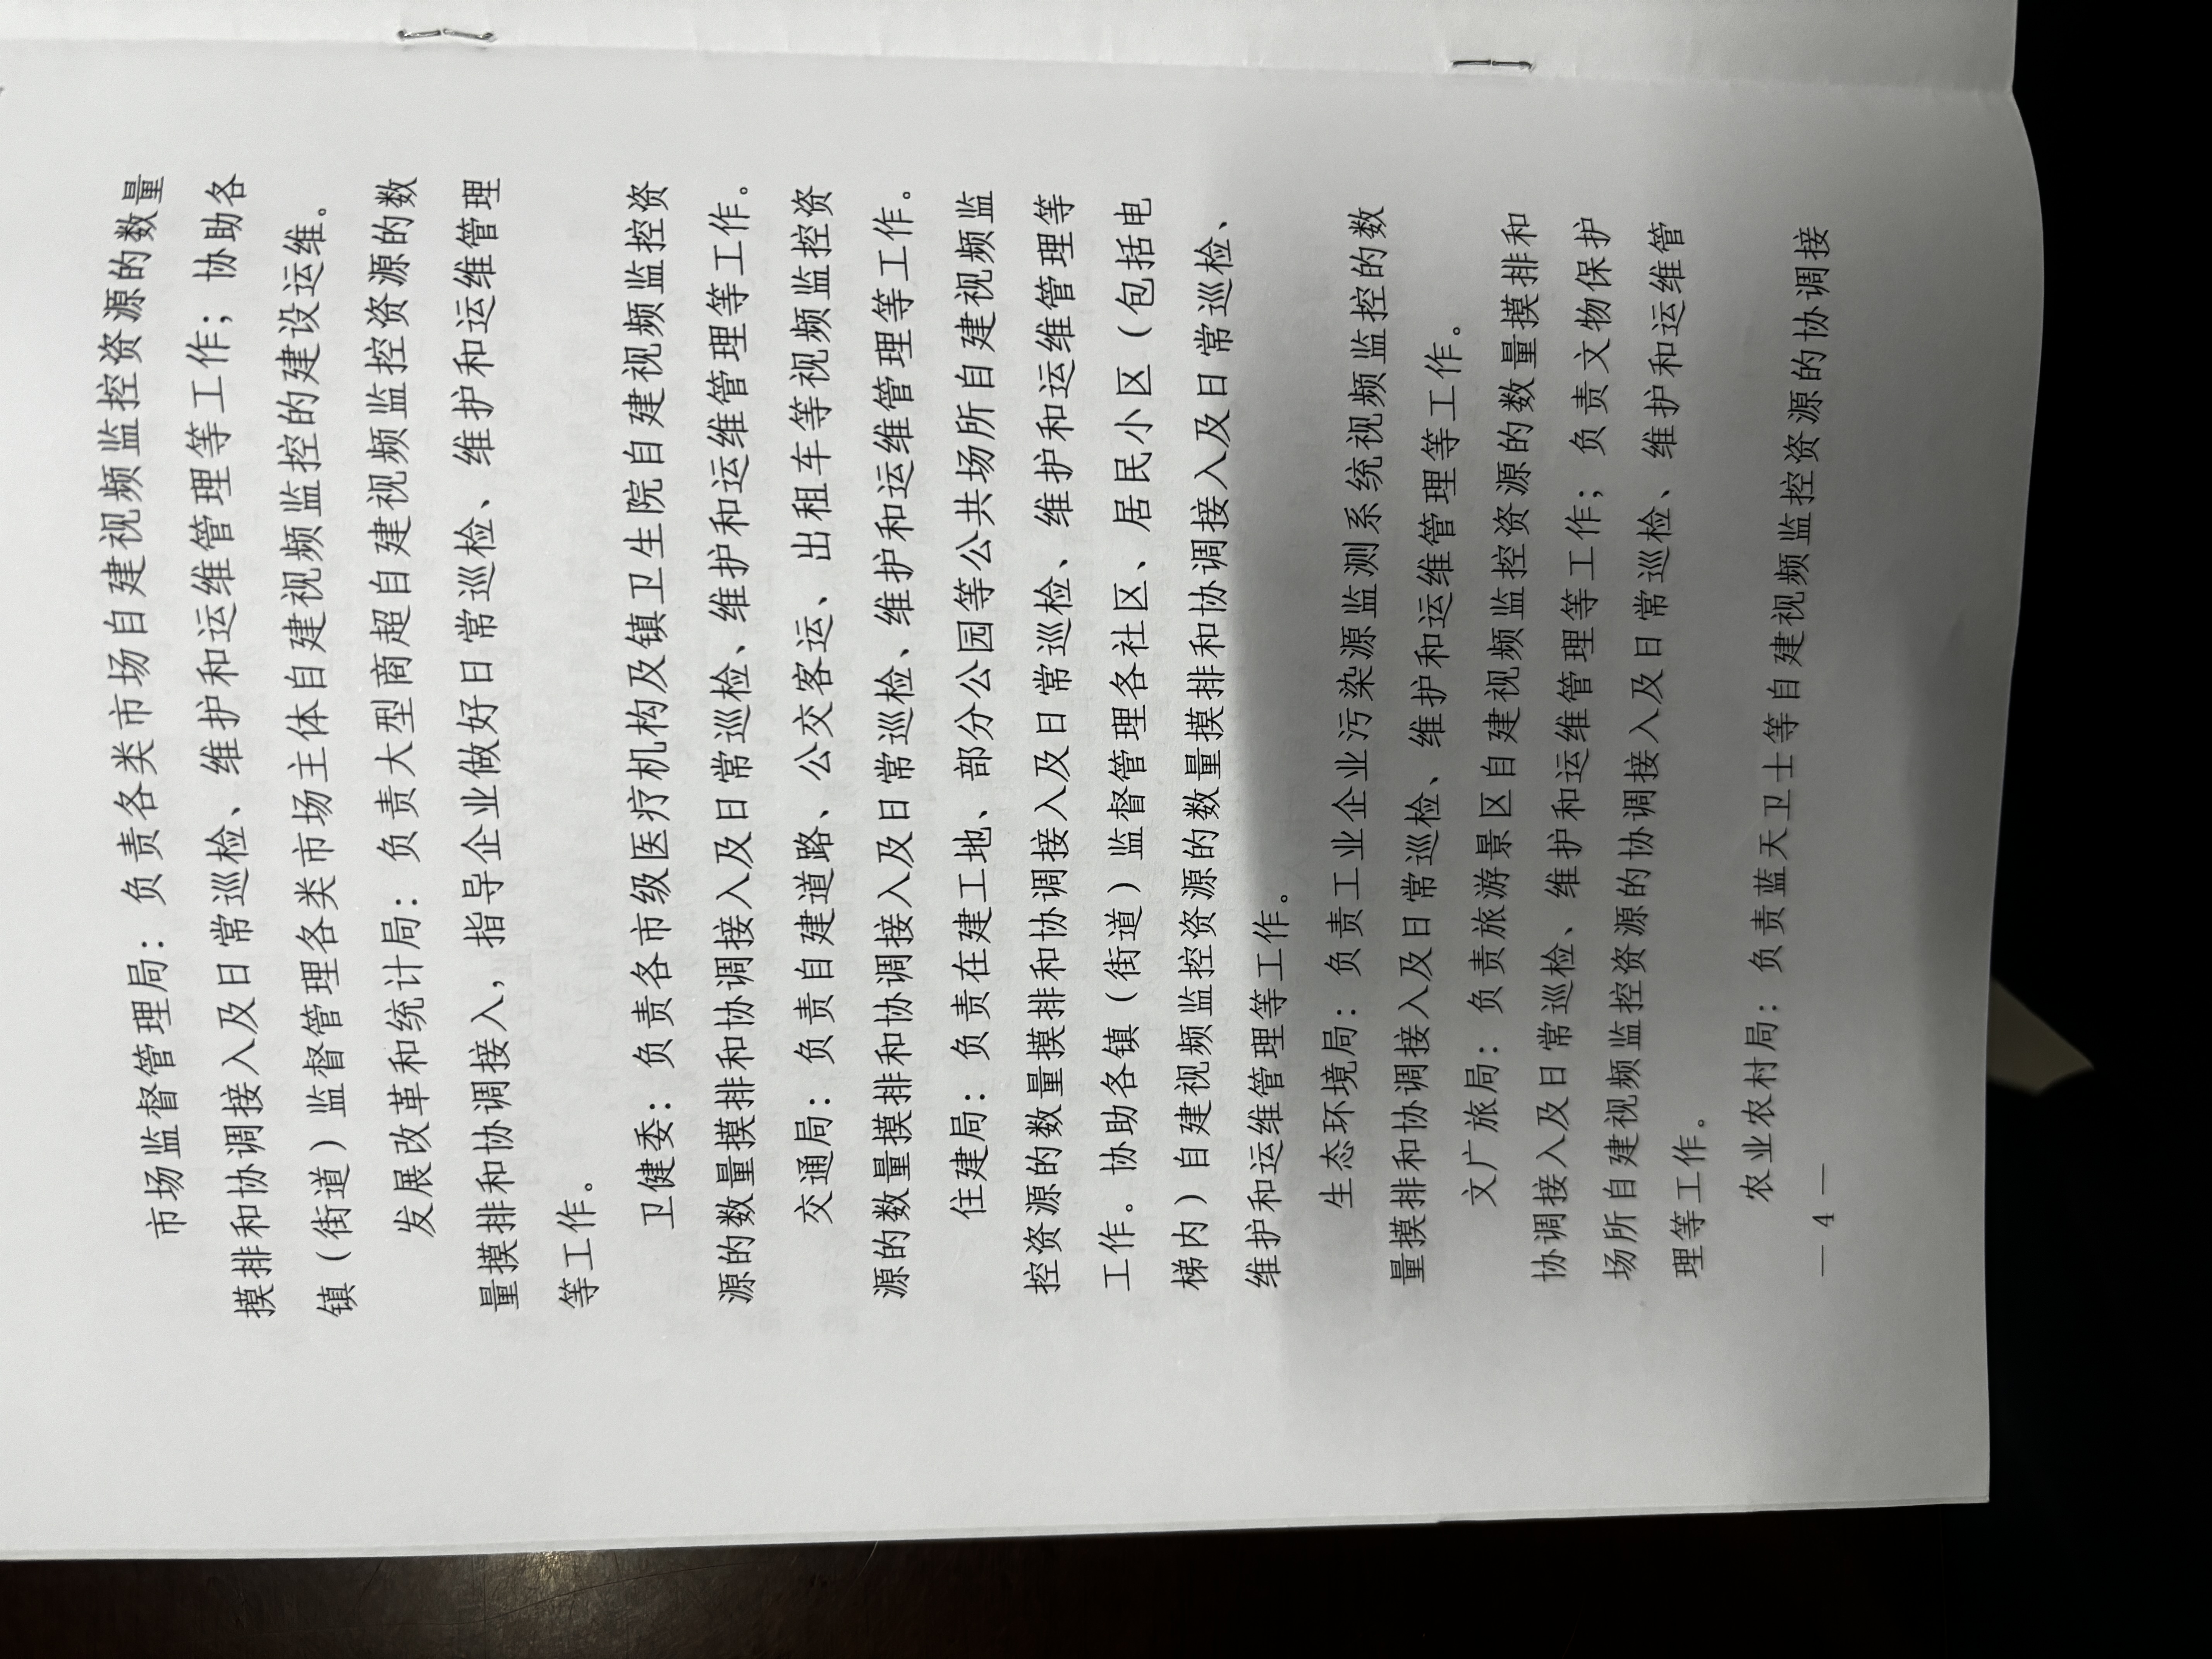 市场监督管理局：负责各类市场自建视频监控资源的数量
摸排和协调接入及日常巡检、维护和运维管理等工作；协助各
镇（街道）监督管理各类市场主体自建视频监控的建设运维。
发展改革和统计局：负责大型商超自建视频监控资源的数
量摸排和协调接入，指导企业做好日常巡检、维护和运维管理
等工作。
卫健委：负责各市级医疗机构及镇卫生院自建视频监控资
源的数量摸排和协调接入及日常巡检、维护和运维管理等工作。
交通局：负责自建道路、公交客运、出租车等视频监控资
源的数量摸排和协调接入及日常巡检、维护和运维管理等工作。
住建局：负责在建工地、部分公园等公共场所自建视频监
控资源的数量摸排和协调接入及日常巡检、维护和运维管理等
工作。协助各镇（街道）监督管理各社区、居民小区（包括电
梯内）自建视频监控资源的数量摸排和协调接入及日常巡检、
维护和运维管理等工作。
生态环境局：负责工业企业污染源监测系统视频监控的数
量摸排和协调接入及日常巡检、维护和运维管理等工作。
文广旅局：负责旅游景区自建视频监控资源的数量摸排和
协调接入及日常巡检、维护和运维管理等工作；负责文物保护
场所自建视频监控资源的协调接入及日常巡检、维护和运维管
理等工作。
农业农村局：负责蓝天卫士等自建视频监控资源的协调接
— 4 —